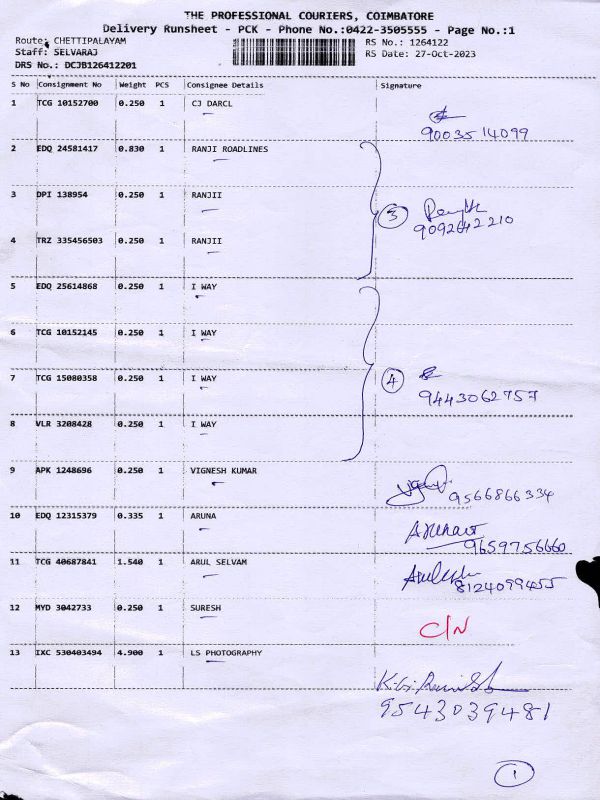 THE PROFESSIONAL COURIERS, COIMBATORE
Delivery Runsheet - PCK - Phone No.:0422-3505555 - Page No.:1
Route: CHETTIPALAYAM RS No.: 1264122
Staff: SELVARAJ RS Date: 27-Oct-2023
DRS No.: DCJB126412201
S No Consignment No Weight PCS Consignee Details Signature
1 TCG 10152700 0.250 1 CJ DARCL
9003514099
2 EDQ 24581417 0.830 1 RANJI ROADLINES
3 DPI 138954 0.250 1 RANJII
3
9092642210
4 TRZ 335456503 0.250 1 RANJII
5 EDQ 25614868 0.250 1 I WAY
6 TCG 10152145 0.250 1 I WAY
7 TCG 15080358 0.250 1 I WAY
4
9443062757
8 VLR 3208428 0.250 1 I WAY
9 APK 1248696 0.250 1 VIGNESH KUMAR
9566866334
10 EDQ 12315379 0.335 1 ARUNA
9659756660
11 TCG 40687841 1.540 1 ARUL SELVAM
8124099455
12 MYD 3042733 0.250 1 SURESH
C/N
13 IXC 530403494 4.900 1 LS PHOTOGRAPHY
9543039481
1